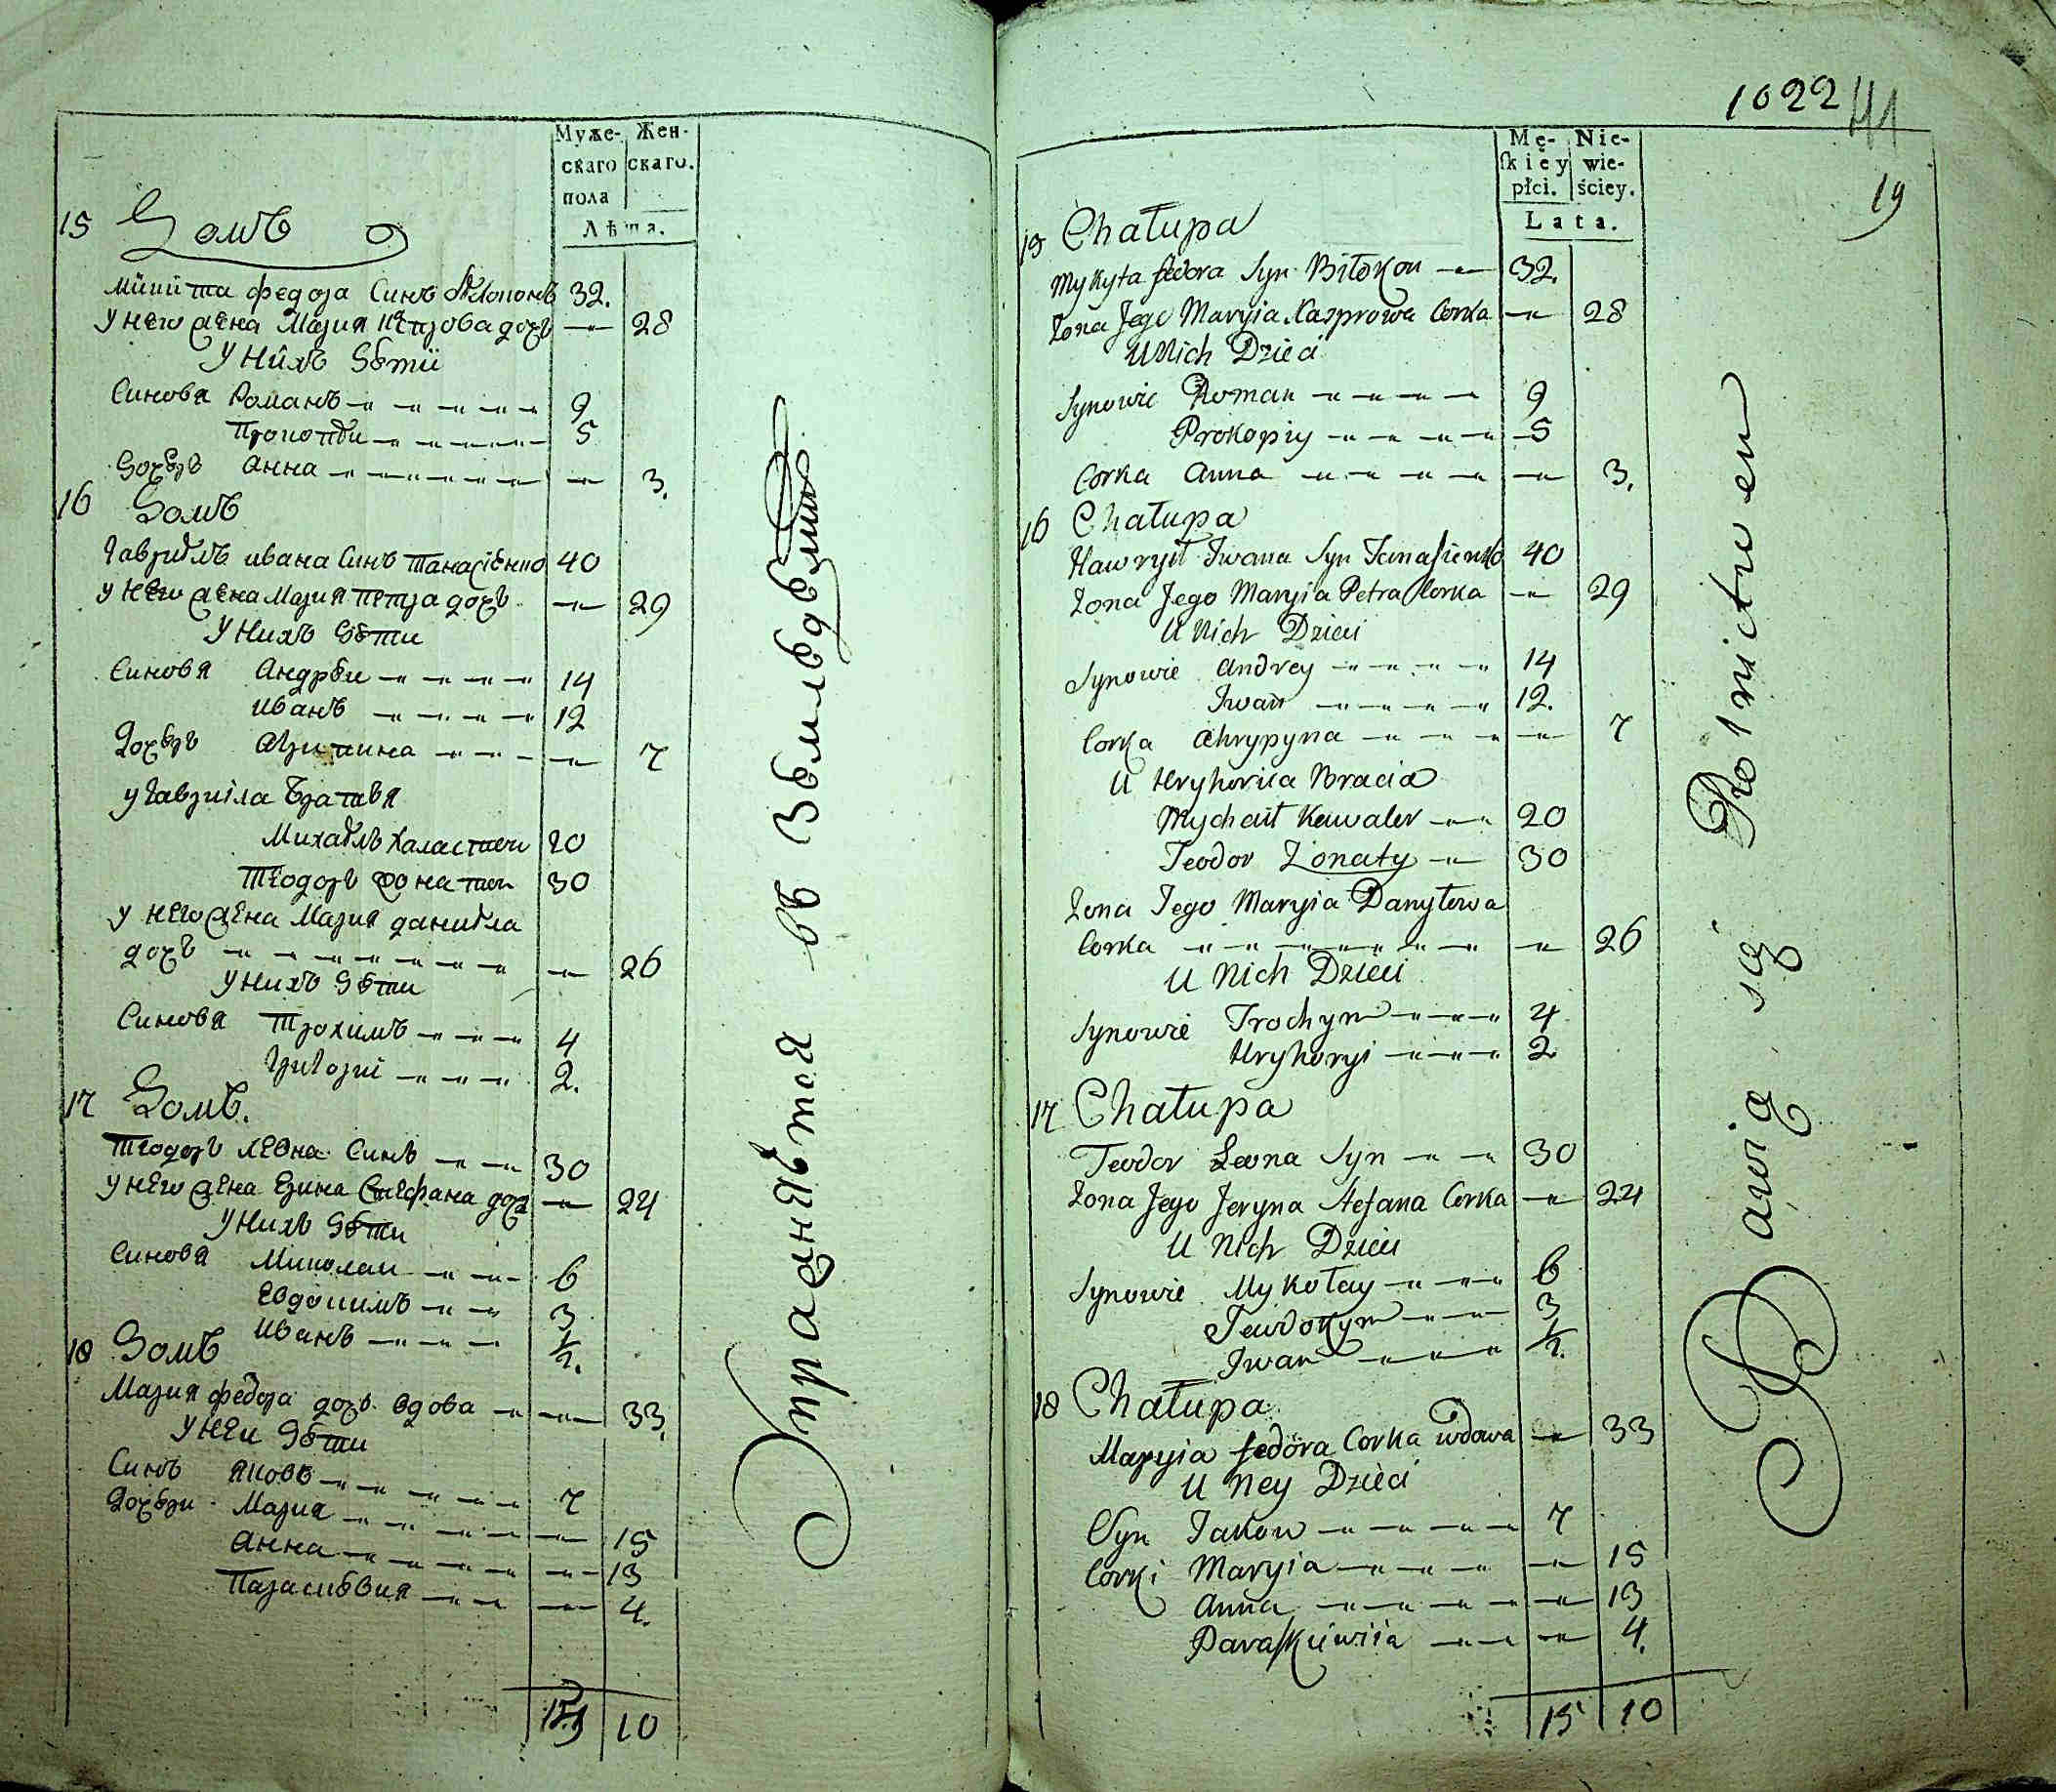 Муже-
скаго
пола
Жен-
скаго.
Лѣта.
15 Домъ
Микита Федора Синъ Бѣлоконъ 32.
У него жена Мария Ка прова дочь 28
У нихъ дѣти
Синовя Романъ 9
Прокопѣи 5
Дочѣрь Анна 3.
16 Домъ
Гавриѣлъ Ивана Синъ Танасіенко 40
У него жена Мария Петра дочь 29
У нихъ дѣти
Синовя Андрѣи 14
Иванъ 12
Дочѣрь Агрипина 7
У Гавриіла Братавя
Михаѣлъ Халастии 20
Теодоръ Жонатии 30
У него жена Мария Даниѣла
дочъ 26
У нихъ дѣти
Синовя Трохимъ 4
Григорій 2.
17 Домъ.
Теодоръ Леона Синъ 30
У него жена Ерина Стефана доч 24
У нихъ дѣти
Синовя Миколаи 6
Евдокимъ 3
Иванъ 1/2.
18 Домъ
Мария Федора дочъ вдова 33.
У неи дѣти
Синъ Яковъ 7
Дочѣри Мария 15
Анна 13
Параскѣвия 4.
15 10
Упражнѣются въ Земледѣлии
1022 41
19
Mę-
skiey
płci.
Nie-
wie-
ściey.
Lata.
15 Chałupa
Mykyta Fedora Syn Biłokon 32.
Zona Jego Maryia Kasprowa Corka 28
U Nich Dzieci
Synowie Roman 9
Prokopiy 5
Corka Anna 3.
16 Chałupa
Hawryił Iwana Syn Tanasienko 40
Zona Jego Maryia Petra Corka 29
U Nich Dzieci
Synowie Andrey 14
Iwan 12.
Corka Ahrypyna 7
U Hryhoriia Bracia
Mychaił Kawaler 20
Teodor Zonaty 30
Zona Jego Maryia Danyłowa
Corka 26
U Nich Dzieci
Synowie Trochym 4
Hryhoryi 2
17 Chałupa
Teodor Leona Syn 30
Zona Jego Jeryna Stefana Corka 24
U Nich Dzieci
Synowie Mykołay 6
Jewdokym 3
Iwan 1/2.
18 Chałupa
Maryia Fedora Corka wdowa 33
U Ney Dzieci
Syn Jakow 7
Corki Maryia 15
Anna 13
Paraskiewiia 4.
15 10
Bawią się Rolnictwem